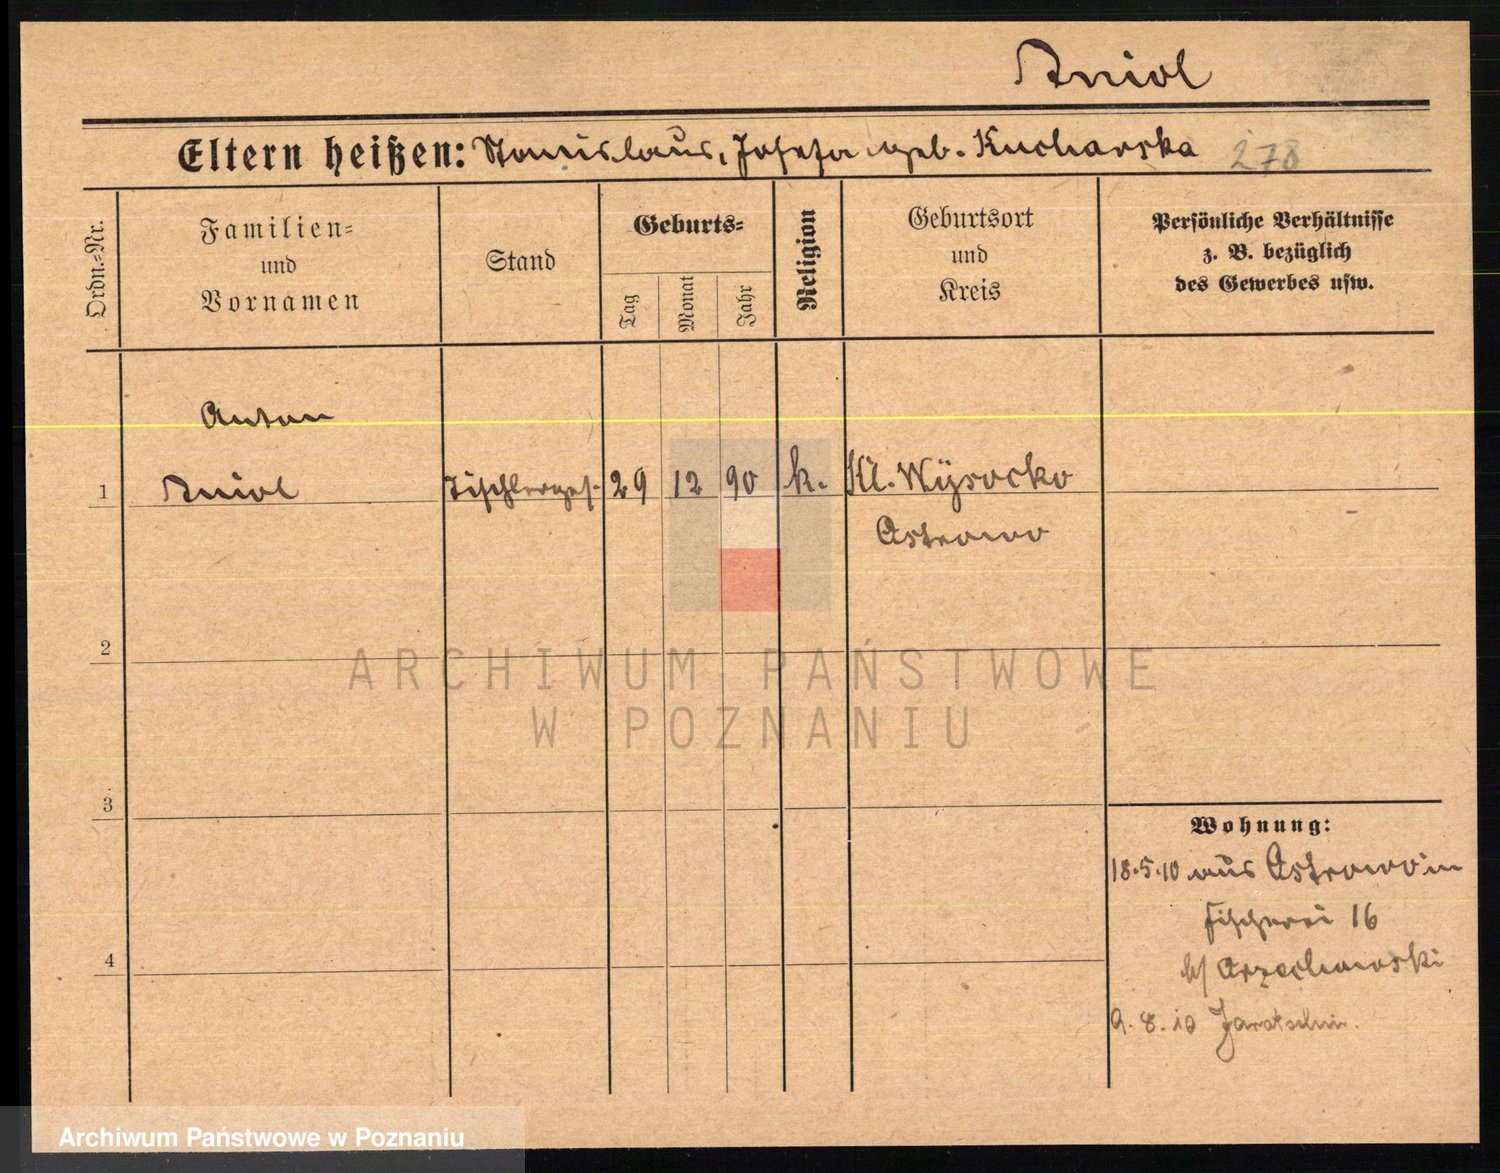 Aniol
Eltern heißen: Stanislaus, Josefa geb. Kucharska 278
Ordn.-Nr.
Familien- und Vornamen
Stand
Geburts-
Tag
Monat
Jahr
Religion
Geburtsort und Kreis
Persönliche Verhältnisse
z. B. bezüglich
des Gewerbes usw.
Anton
1 Aniol Tischlerges. 29 12 90 k. Kl. Wysocko
Ostrowo
2
ARCHIWUM PAŃSTWOWE
W POZNANIU
3
Wohnung:
18.5.10 aus Ostrowo in
Fischerei 16
b/ Orzechowski
4
9.8.10 Jarotschin.
Archiwum Państwowe w Poznaniu